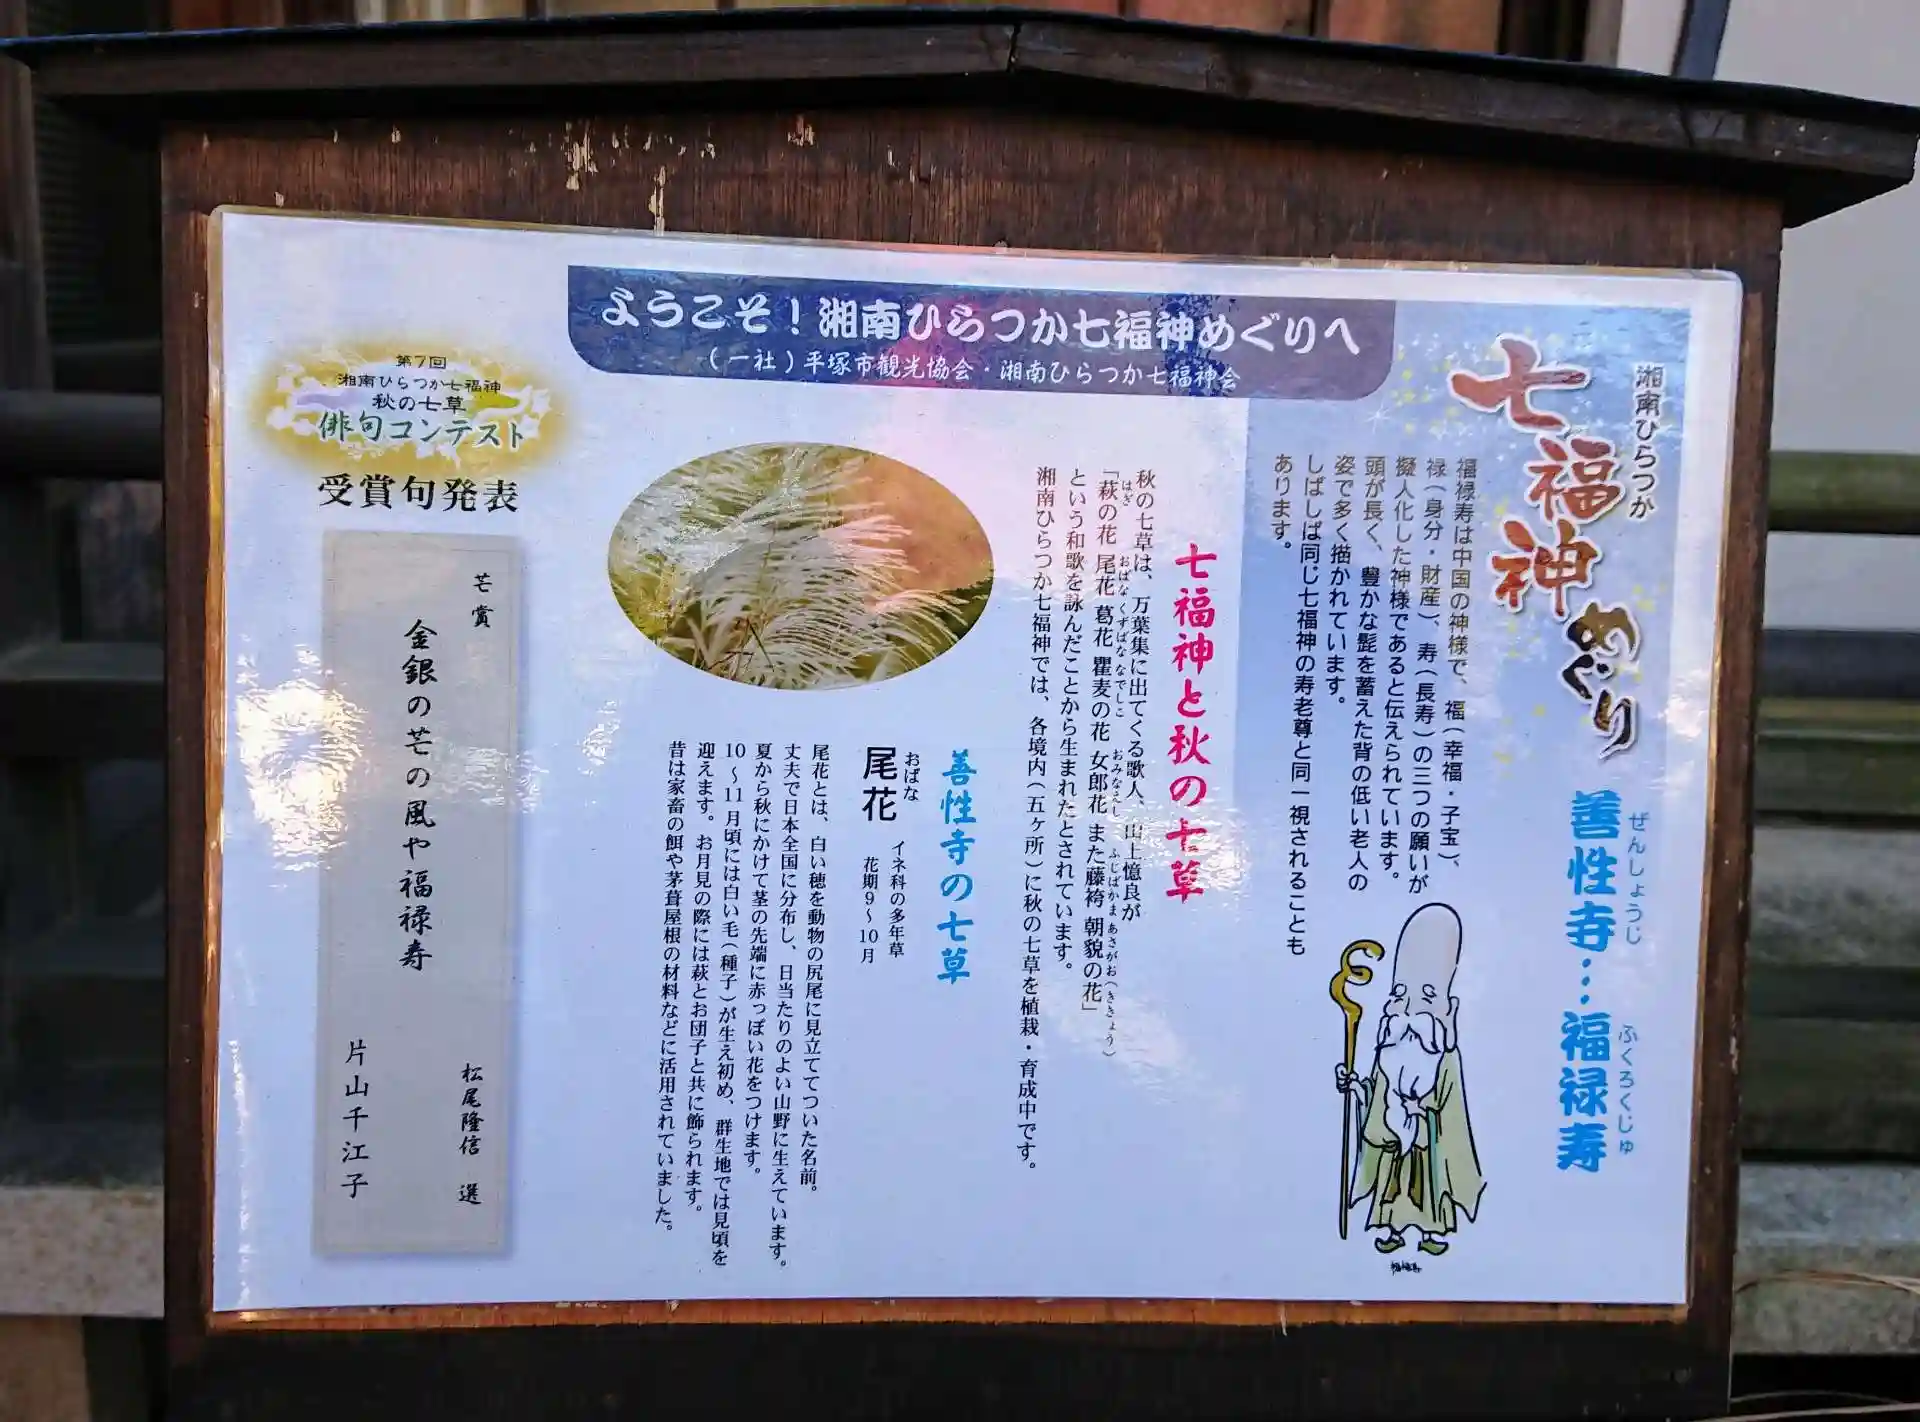 ようこそ!湘南ひらつか七福神めぐりへ
(一社)平塚市観光協会・湘南ひらつか七福神会
湘南ひらつか
七福神めぐり
善性寺…福禄寿
ぜんしょうじ
ふくろくじゅ
福禄寿は中国の神様で、福(幸福・子宝)、
禄(身分・財産)、寿(長寿)の三つの願いが
擬人化した神様であると伝えられています。
頭が長く、豊かな髭を蓄えた背の低い老人の
姿で多く描かれています。
しばしば同じ七福神の寿老尊と同一視されることも
あります。
七福神と秋の七草
秋の七草は、万葉集に出てくる歌人、山上憶良が
「萩の花 尾花 葛花 瞿麦の花 女郎花 また藤袴 朝貌の花」
はぎ おばな くずばな なでしこ おみなえし ふじばかま あさがお(ききょう)
という和歌を詠んだことから生まれたとされています。
湘南ひらつか七福神では、各境内(五ヶ所)に秋の七草を植栽・育成中です。
善性寺の七草
尾花
おばな
イネ科の多年草
花期9〜10月
尾花とは、白い穂を動物の尻尾に見立ててついた名前。
丈夫で日本全国に分布し、日当たりのよい山野に生えています。
夏から秋にかけて茎の先端に赤っぽい花をつけます。
10〜11月頃には白い毛(種子)が生え初め、群生地では見頃を
迎えます。お月見の際には萩とお団子と共に飾られます。
昔は家畜の餌や茅葺屋根の材料などに活用されていました。
第7回
湘南ひらつか七福神
秋の七草
俳句コンテスト
受賞句発表
芒賞
松尾隆信 選
金銀の芒の風や福禄寿
片山千江子
福禄寿